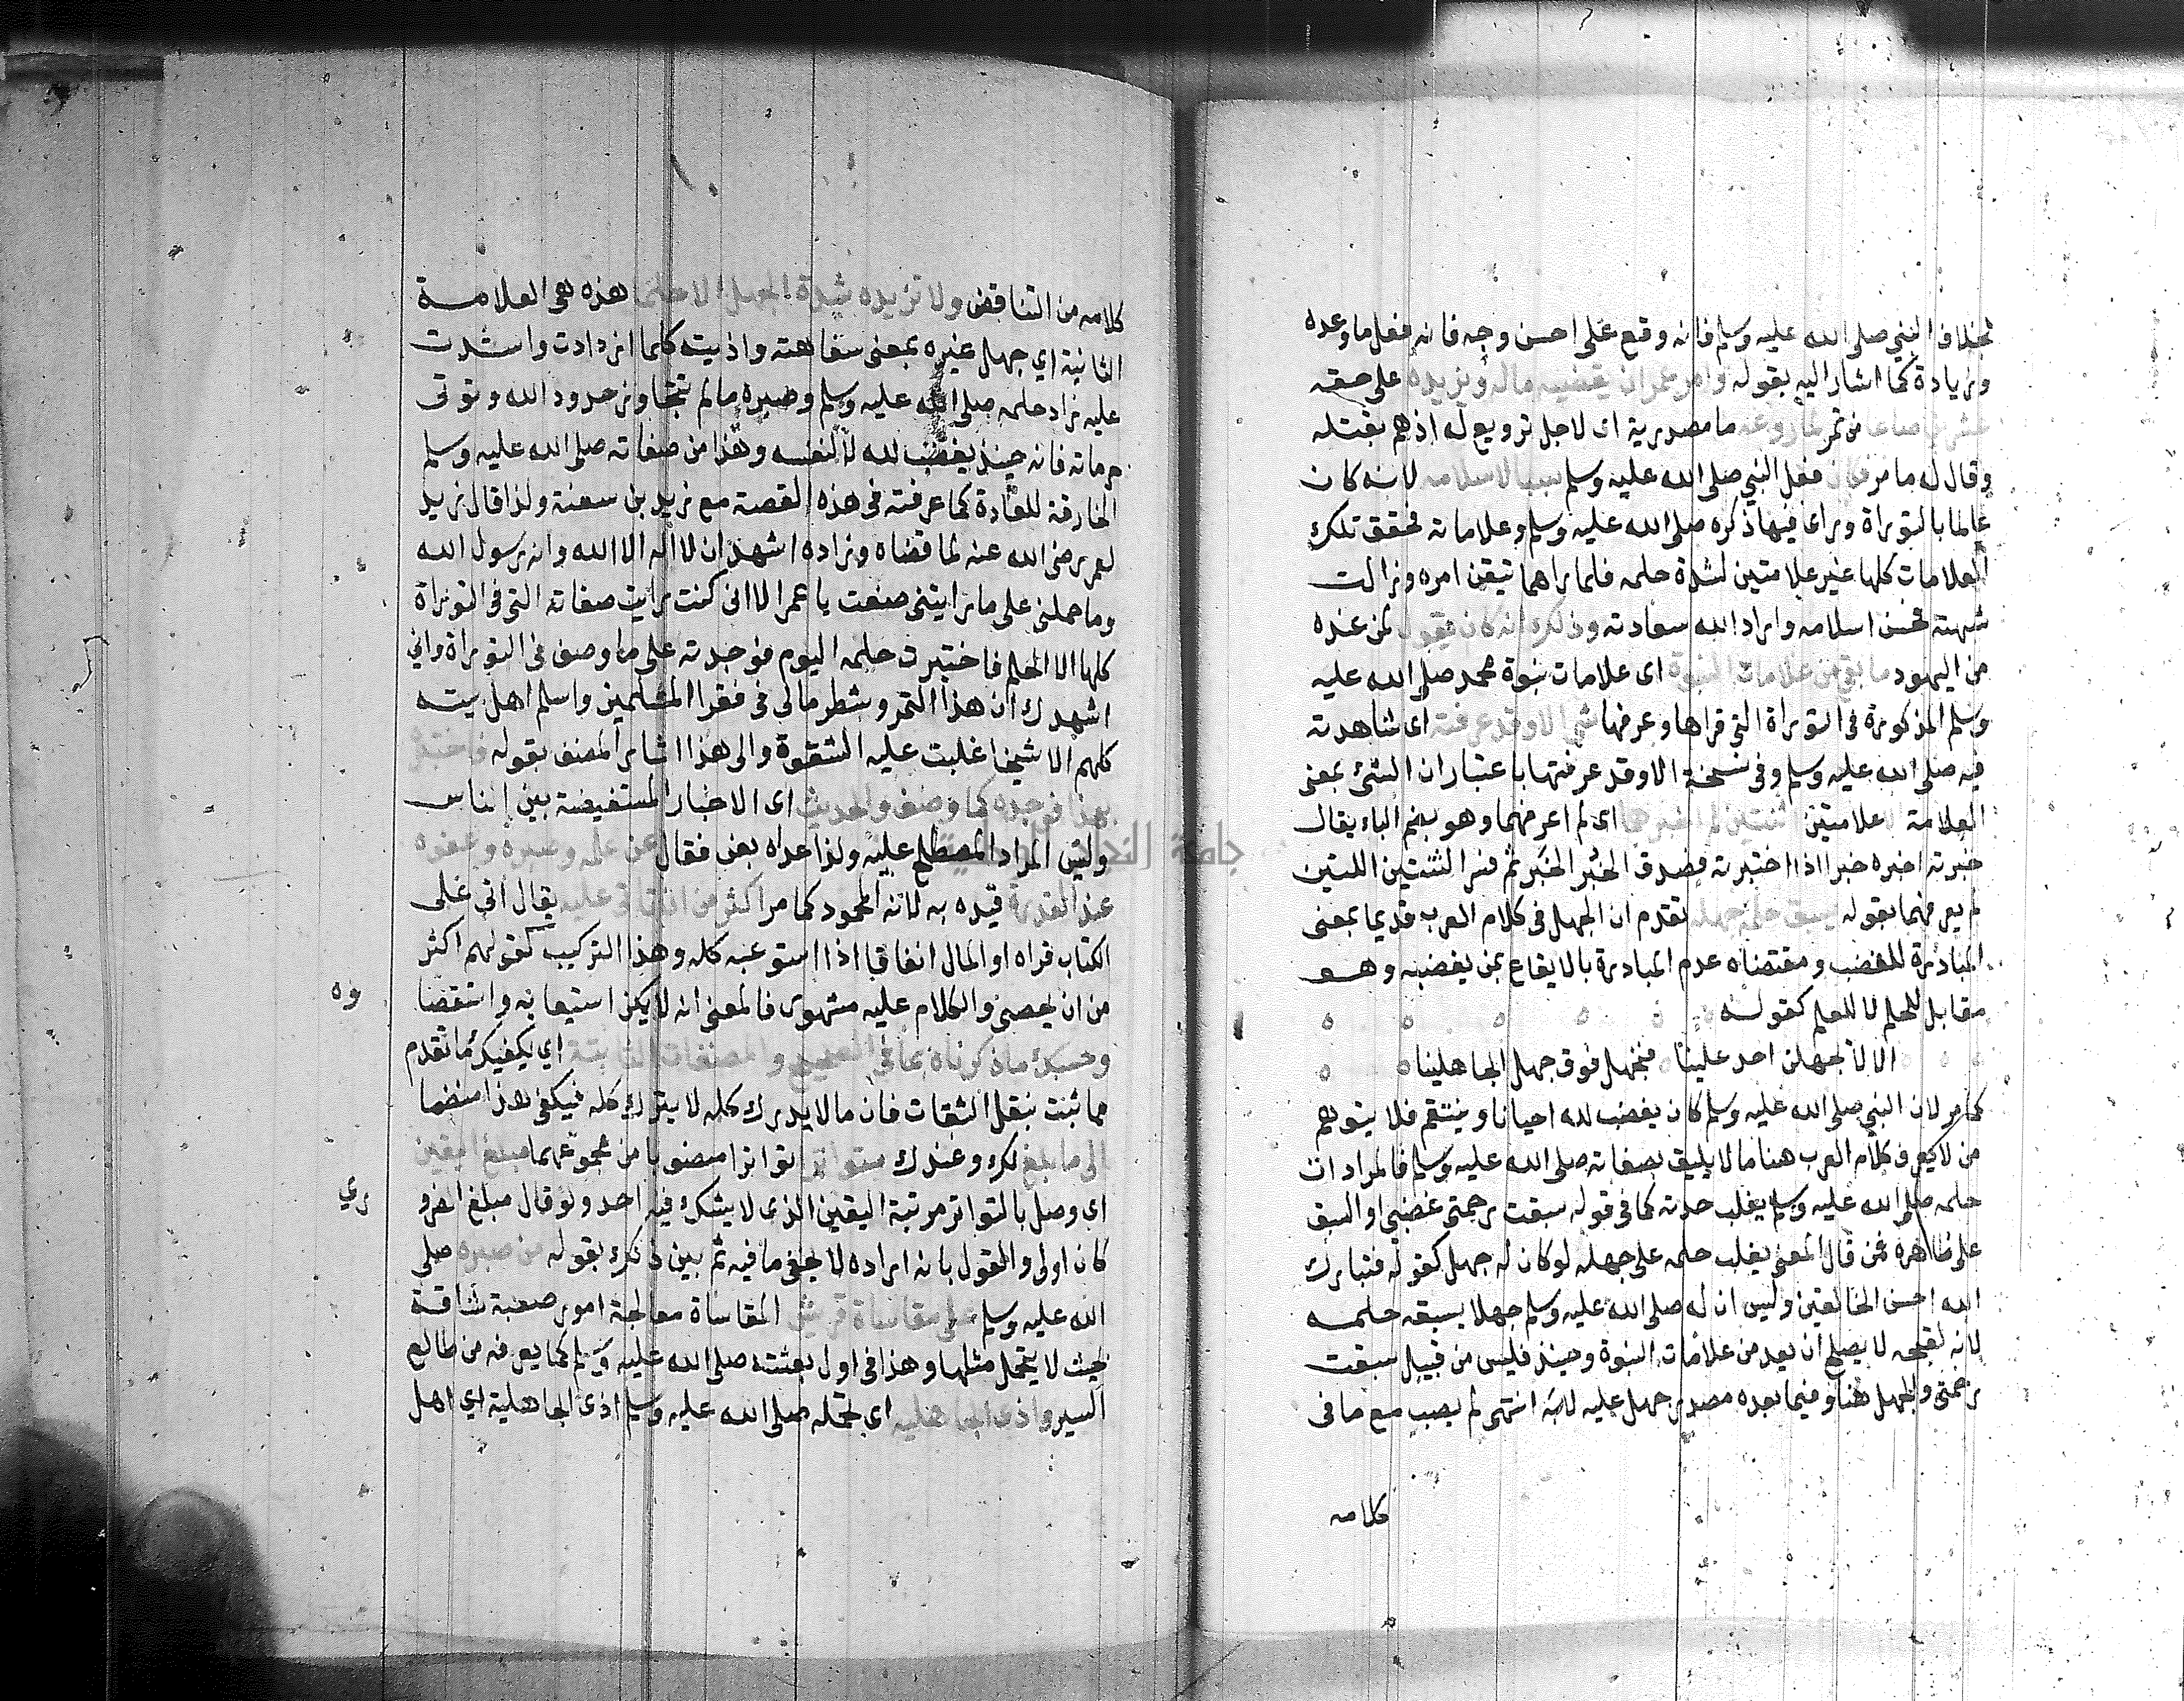 بخلاف النبي صلى الله عليه وسلم فانه وقع على احسن وجه فانه فعل ما وعده
وزيادة كما اشار اليه بقوله وامر عمر ان يقضيه ماله ويزيده على حقه
عشرين صاعا من تمر لما روعه ما مصدرية اى لاجل ترويع له اذ هم بقتله
وقال له ما مر فكان فعل النبي صلى الله عليه وسلم سببا لاسلامه لانه كان
عالما بالتوراة وراى فيها ذكره صلى الله عليه وسلم وعلاماته فحقق تلك
العلامات كلها غير علامتين لشدة حلمه فلما راهما تيقن امره وزالت
شبهته فحسن اسلامه واراد الله سعادته وذلك انه كان يقول لمن عنده
من اليهود ما بقى من علامات النبوة اى علامات نبوة محمد صلى الله عليه
وسلم المذكورة فى التوراة التى قراها وعرفها شى الا وقد عرفته اى شاهدته
فيه صلى الله عليه وسلم وفى نسخة الا وقد عرفتها باعتبار ان الشئ بمعنى
العلامة الا علامتين اثنتين لم اخبرهما اى لم اعرفهما وهو بضم الباء يقال
خبرته اخبره خبرا اذا اختبرته فصدق الخبر الخبر ثم فسر الثنتين اللتين
لم يعرفهما بقوله يسبق حلمه جهله تقدم ان الجهل فى كلام العرب قديما بمعنى
المبادرة للغضب ومقتضاه عدم المبادرة بالايقاع بمن يغضبه وهو
مقابل للحلم لا للعلم كقوله
الا لا يجهلن احد علينا فنجهل فوق جهل الجاهلينا
كما مر لان النبي صلى الله عليه وسلم كان يغضب لله احيانا وينتقم فلا يتوهم
من لا يعرف كلام العرب هنا ما لا يليق بصفاته صلى الله عليه وسلم فالمراد ان
حلمه صلى الله عليه وسلم يغلب حدته كما فى قوله سبقت رحمتى غضبى او السبق
على ظاهره فمن قال المعنى يغلب حلمه على جهله لو كان له جهل كقوله فتبارك
الله احسن الخالقين وليس ان له صلى الله عليه وسلم جهلا يسبقه حلمه
لانه لقبحه لا يصلح ان يعد من علامات النبوة وحينئذ فليس من قبيل سبقت
رحمتى والجهل هنا وفيما بعده مصدر جهل عليه لانه انتهى لم يصب مع ما فى
كلامه
كلامه من التناقض ولا تزيده شدة الجهل الا حلما هذه هى العلامة
الثانية اي جهل غيره بمعنى سفاهته واذيته كلما ازدادت واشتدت
عليه زاد حلمه صلى الله عليه وسلم وصبره ما لم تتجاوز حدود الله وتؤتى
حرماته فانه حينئذ يغضب لله لا لنفسه وهذا من صفاته صلى الله عليه وسلم
الخارقة للعادة كما عرفته فى هذه القصة مع زيد بن سعنة ولذا قال زيد
لعمر رضى الله عنه لما قضاه وزاده اشهد ان لا اله الا الله وانه رسول الله
وما حملنى على ما رايتنى صنعت يا عمر الا انى كنت رايت صفاته التى فى التوراة
كلها الا الحلم فاختبرت حلمه اليوم فوجدته على ما وصف فى التوراة واني
اشهدك ان هذا التمر وشطر مالى فى فقرا المسلمين واسلم اهل بيته
كلهم الا شيخا غلبت عليه الشقوة والى هذا اشار المصنف بقوله فاختبره
بهذا فوجده كما وصف والحديث اى الاخبار المستفيضة بين الناس
وليس المراد المصطلح عليه ولذا عداه بعن فقال عن حلمه وصبره وعفوه
عند القدرة قيده به لانه المحمود كما مر اكثر من ان ناتى عليه يقال اتى على
الكتاب قراه او المال انفاقا اذا استوعبه كله وهذا التركيب كقولهم اكثر
من ان يحصى والكلام عليه مشهور فالمعنى انه لا يمكن استيعابه واستقصا
وه
وحسبك ما ذكرناه مما فى الصحيح والمصنفات الثابتة اي يكفيك ما تقدم
مما ثبت بنقل الثقات فان ما لا يدرك كله لا يترك كله فيكفى هذا منضما
الى ما بلغ لك وعندك متواترا تواترا مصنويا من مجموعهما مبلغ اليقين
اى وصل بالتواتر مرتبة اليقين الذى لا يشك فيه احد ولو قال مبلغ الضرو
ري
كان اولى والقول بانه اراده لا يخفى ما فيه ثم بين ذلك بقوله من صبره صلى
الله عليه وسلم على مقاساة قريش المقاساة معالجة امور صعبة شاقة
بحيث لا يتحمل مثلها وهذا فى اول بعثته صلى الله عليه وسلم كما يعرفه من طالع
السير واذى الجاهلية اى تحمله صلى الله عليه وسلم اذى الجاهلية اي اهل